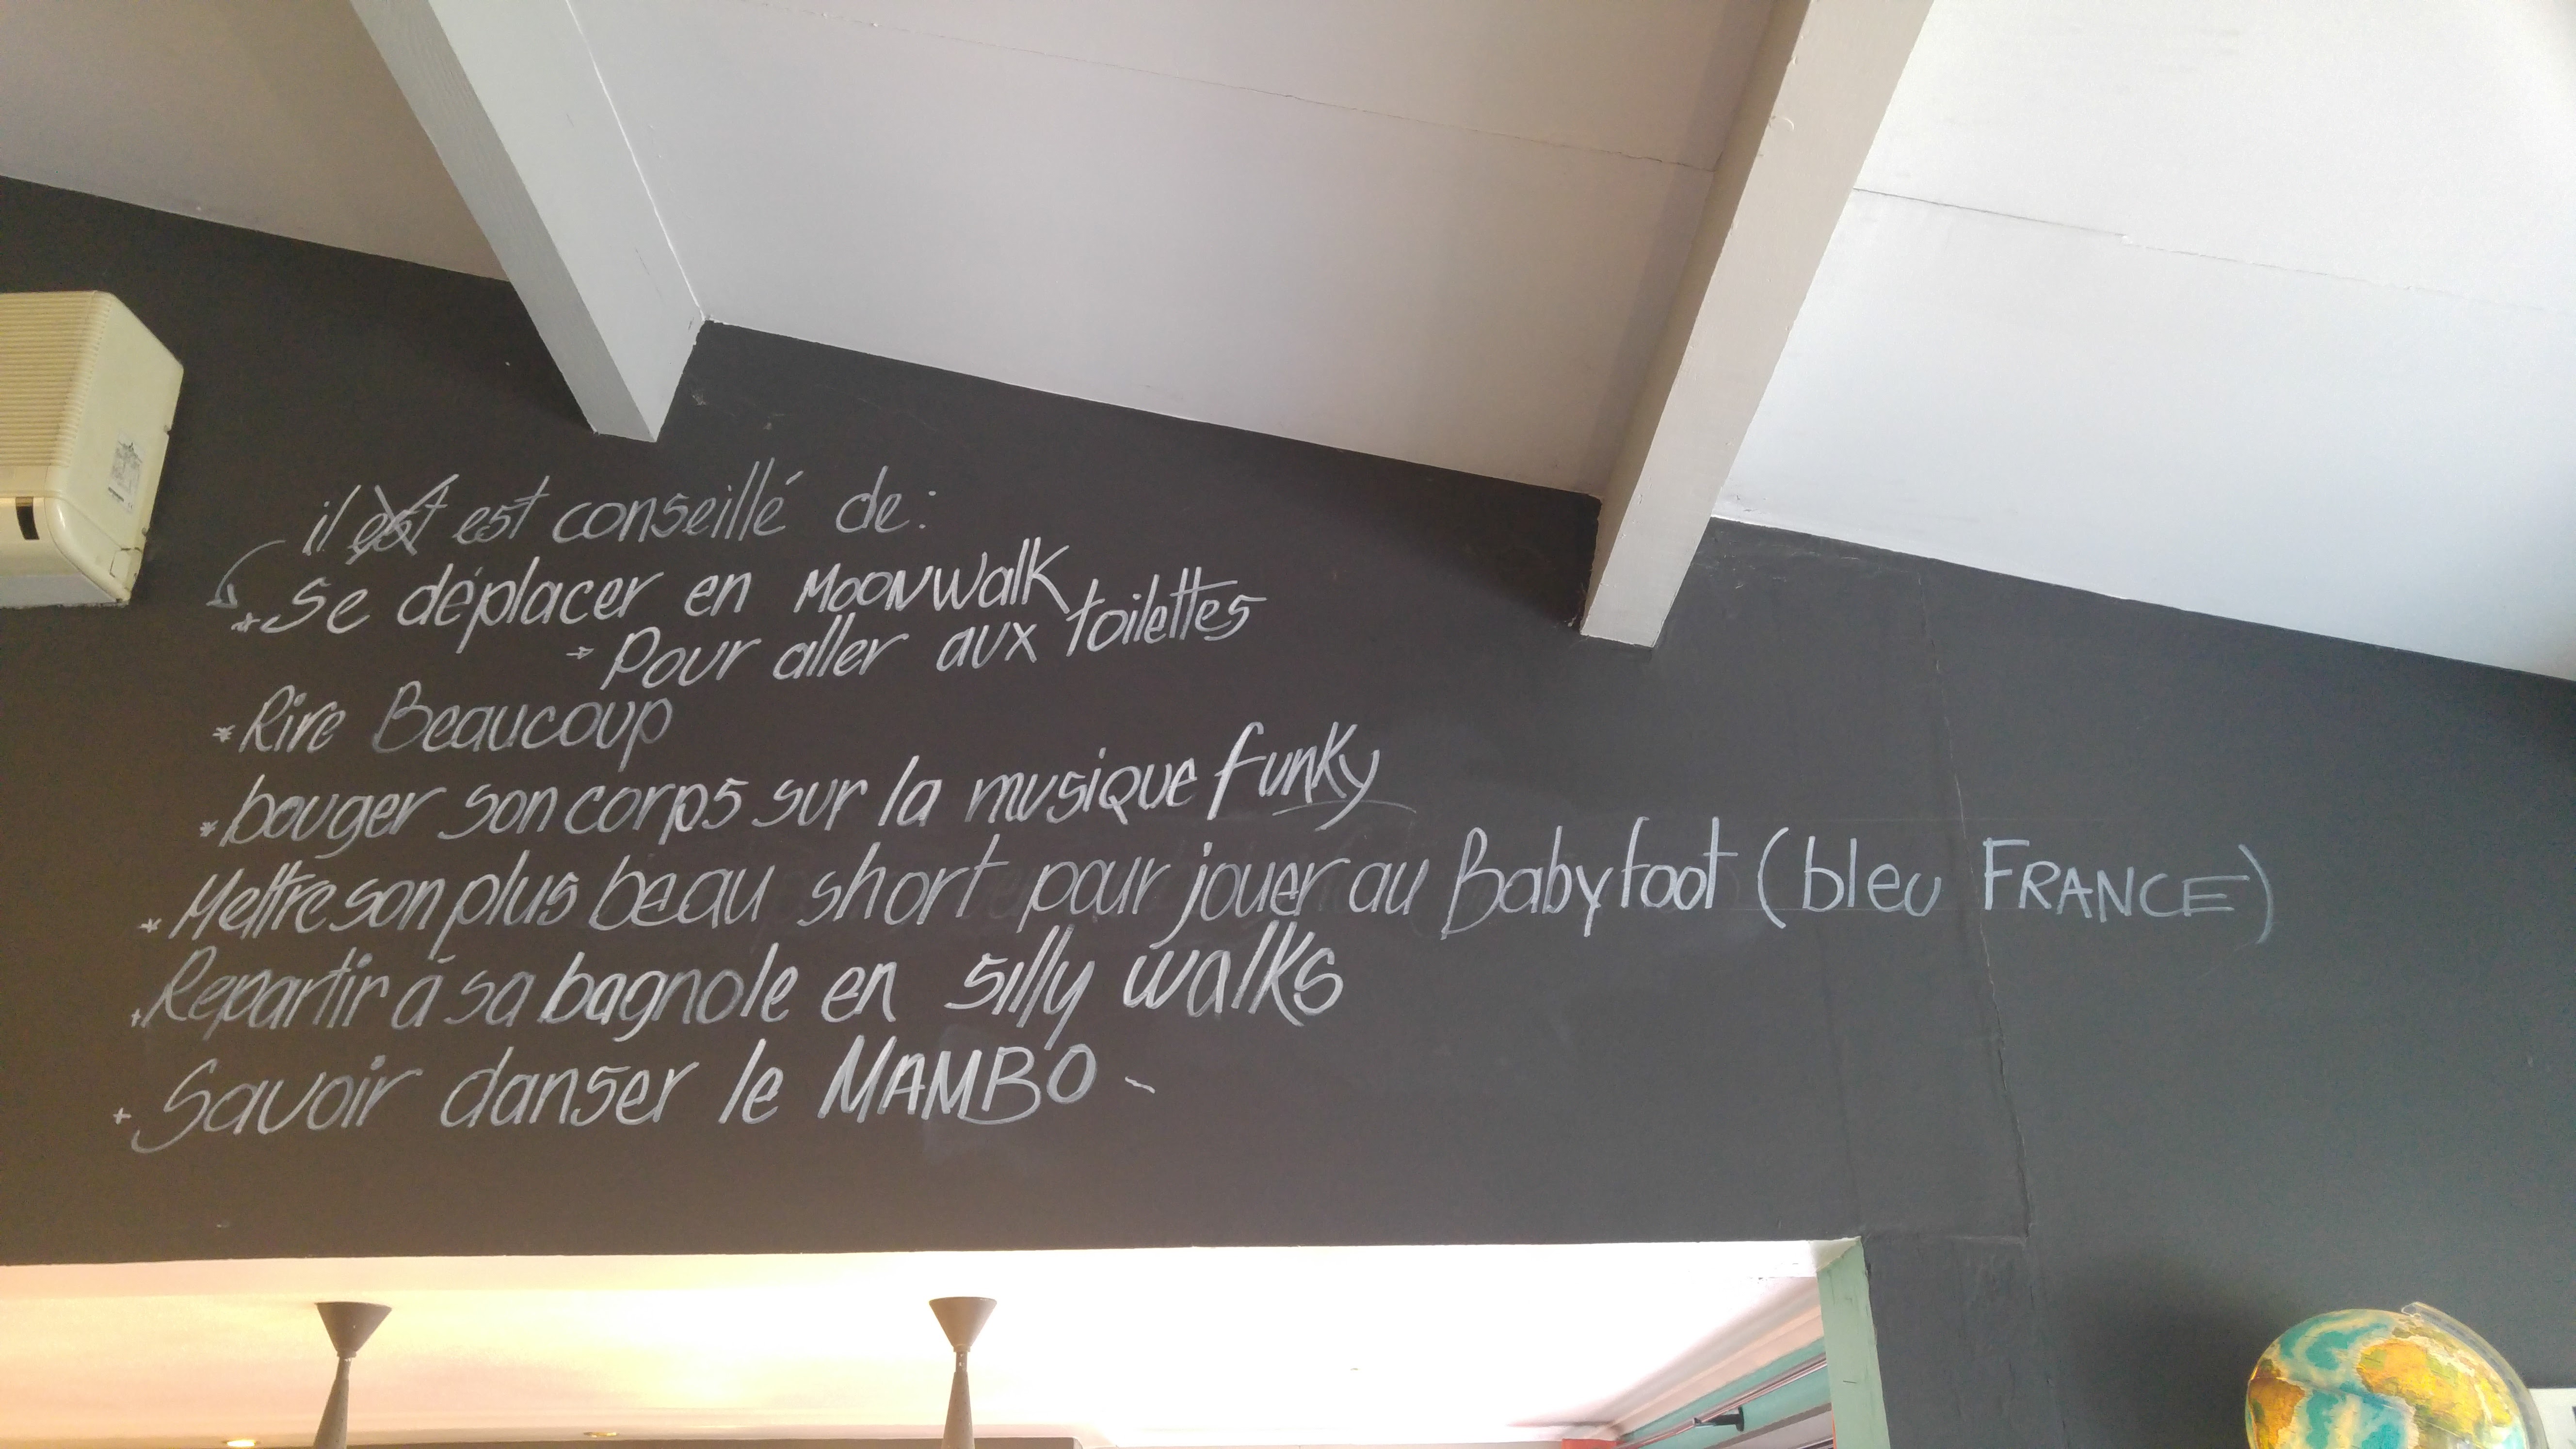 il est est conseillé de:
* Se déplacer en MOONWalk
→ Pour aller aux toilettes
* Rire Beaucoup
* bouger son corps sur la musique funky
* Mettre son plus beau short pour jouer au Babyfoot (bleu FRANCE)
* Repartir à sa bagnole en silly walks
* Savoir danser le MAMBO ~